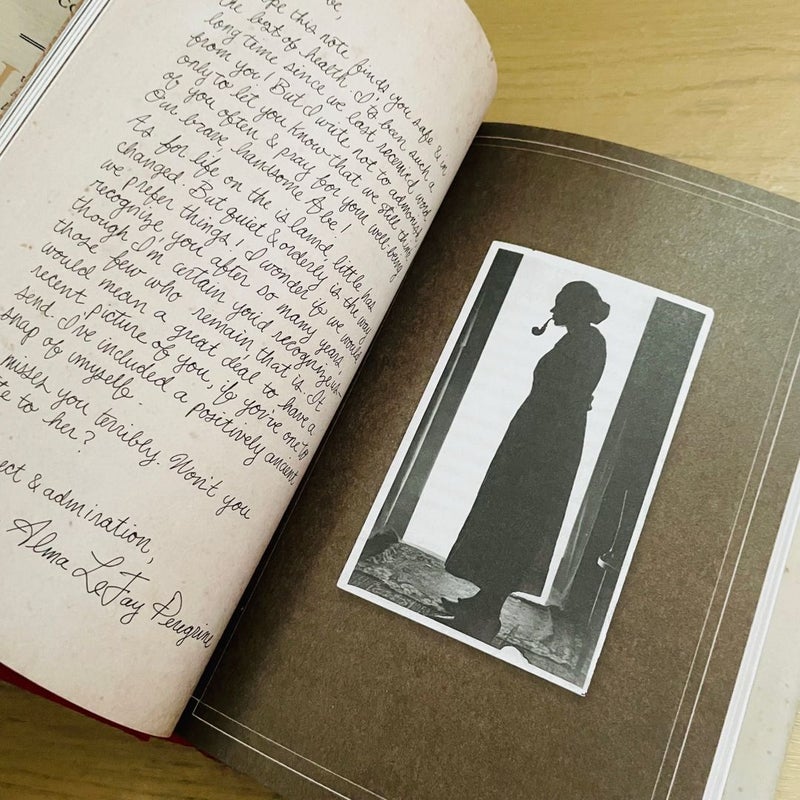 this note finds you safe & in
the best of health. It's been such a
long time since we last received word
from you! But I write not to admonish
only to let you know that we still think
of you often & pray for your well-being.
Our brave, handsome Abe!
As for life on the island, little has
changed. But quiet & orderly is the way
we prefer things! I wonder if we would
recognize you after so many years,
though I'm certain you'd recognize us—
those few who remain, that is. It
would mean a great deal to have a
recent picture of you, if you've one to
send. I've included a positively ancient
snap of myself.
misses you terribly. Won't you
to her?
& admiration,
Alma LeFay Peregrine